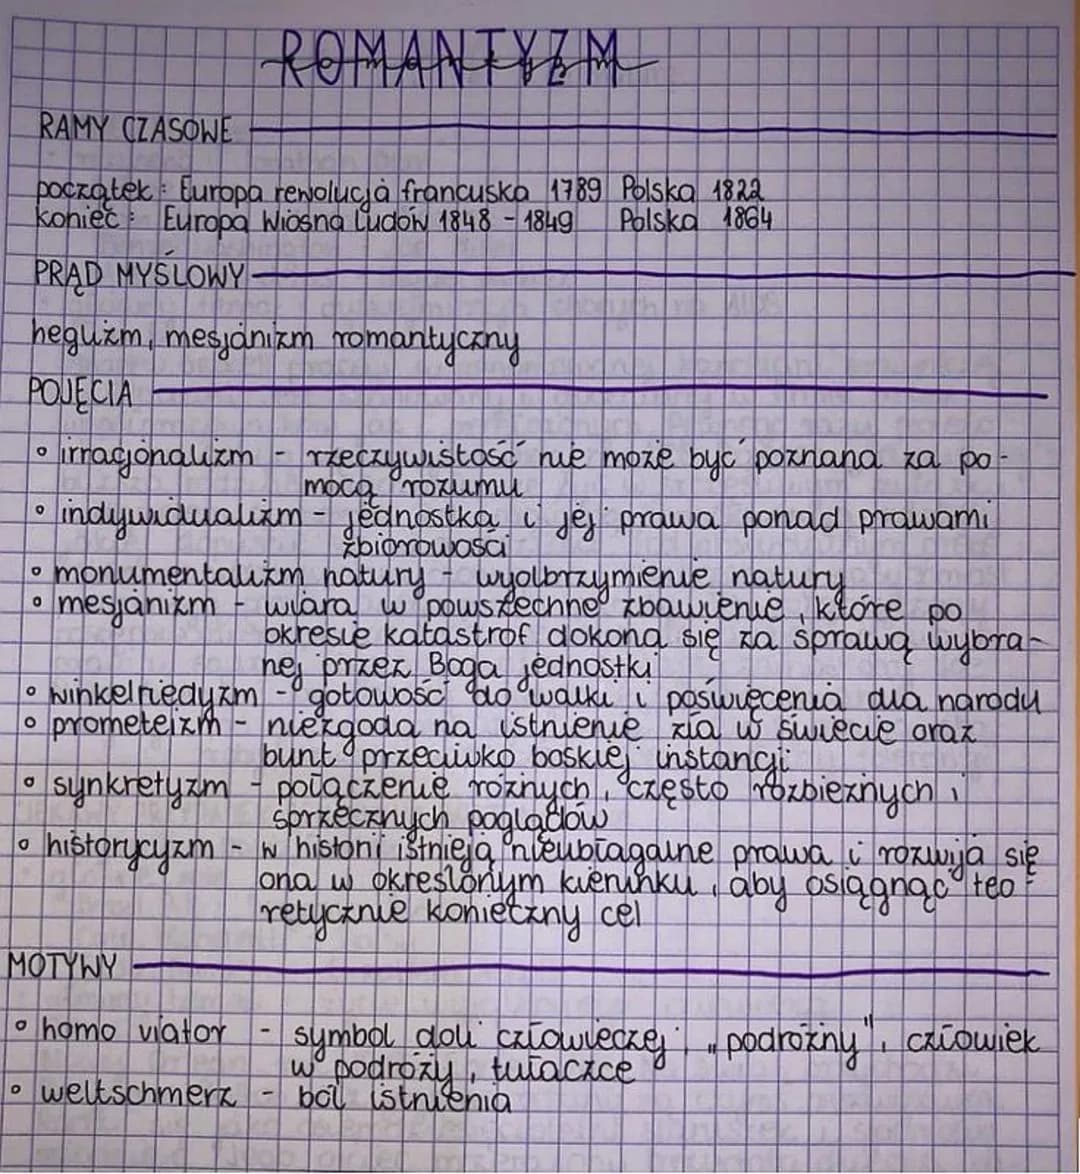 ROMANTYZM
RAMY CZASOWE
początek: Europa rewolucja francuska 1789 Polska 1822
koniec: Europa Wiosna Ludów 1848 - 1849 Polska 1864
PRĄD MYŚLOWY
heglizm, mesjanizm romantyczny
POJĘCIA
• irracjonalizm - rzeczywistość nie może być poznana za po-
mocą rozumu
• indywidualizm - jednostka i jej prawa ponad prawami
zbiorowości
• monumentalizm natury - wyolbrzymienie natury
• mesjanizm - wiara w powszechne zbawienie, które po
okresie katastrof dokona się za sprawą wybra-
nej przez Boga jednostki
• winkelriedyzm - gotowość do walki i poświęcenia dla narodu
• prometeizm - niezgoda na istnienie zła w świecie oraz
bunt przeciwko boskiej instancji
• synkretyzm - połączenie różnych, często rozbieżnych i
sprzecznych poglądów
• historycyzm - w historii istnieją nieubłagalne prawa i rozwija się
ona w określonym kierunku, aby osiągnąć teo-
retycznie konieczny cel
MOTYWY
• homo viator - symbol doli człowieczej, „podróżny", człowiek
w podróży, tułaczce
• weltschmerz - ból istnienia